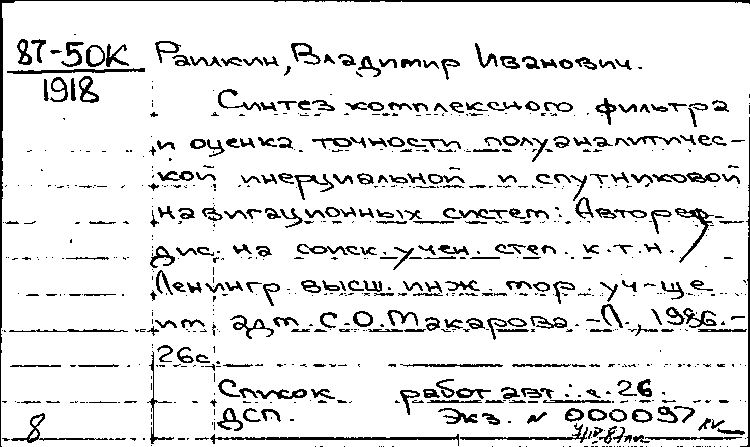 87-50К Раилкин, Владимир Иванович.
1918
Синтез комплексного фильтра
и оценка точности полуаналитичес-
кой инерциальной и спутниковой
навигационных систем: Автореф.
дис. на соиск. учен. степ. к.т.н. /
Ленингр. высш. инж. мор. уч-ще
им. адм. С.О.Макарова. -Л., 1986.-
26с.
Список работ авт.: с. 26.
ДСП. Экз. N 000097
8